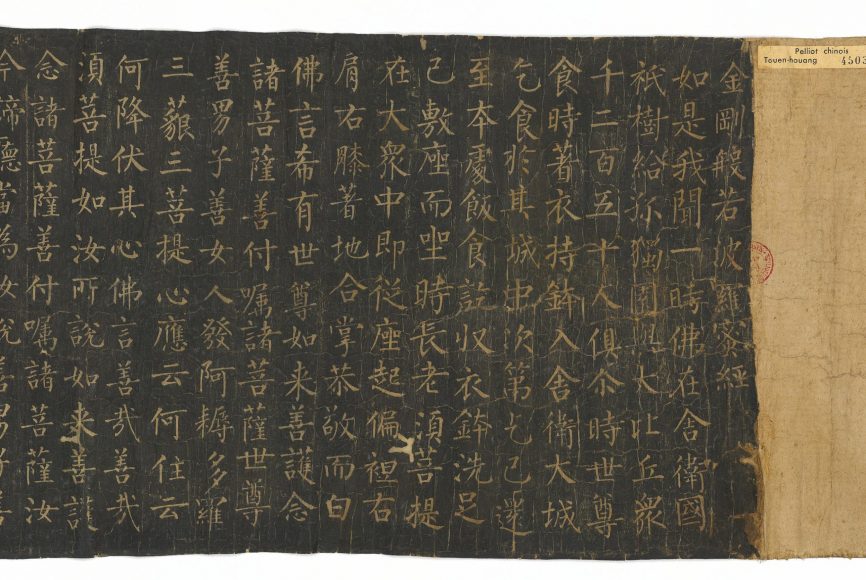 Pelliot chinois
Touen-houang 4503
金剛般若波羅蜜經
如是我聞一時佛在舍衛國
祇樹給孤獨園與大比丘衆
千二百五十人俱尒時世尊
食時著衣持鉢入舍衛大城
乞食於其城中次第乞已還
至本處飯食訖収衣鉢洗足
已敷座而坐時長老湏菩提
在大衆中即從座起偏袒右
肩右膝著地合掌恭敬而白
佛言希有世尊如来善護念
諸菩薩善付囑諸菩薩世尊
善男子善女人發阿耨多羅
三藐三菩提心應云何住云
何降伏其心佛言善哉善哉
湏菩提如汝所說如来善護
念諸菩薩善付囑諸菩薩汝
今諦聽當為汝說善男子善